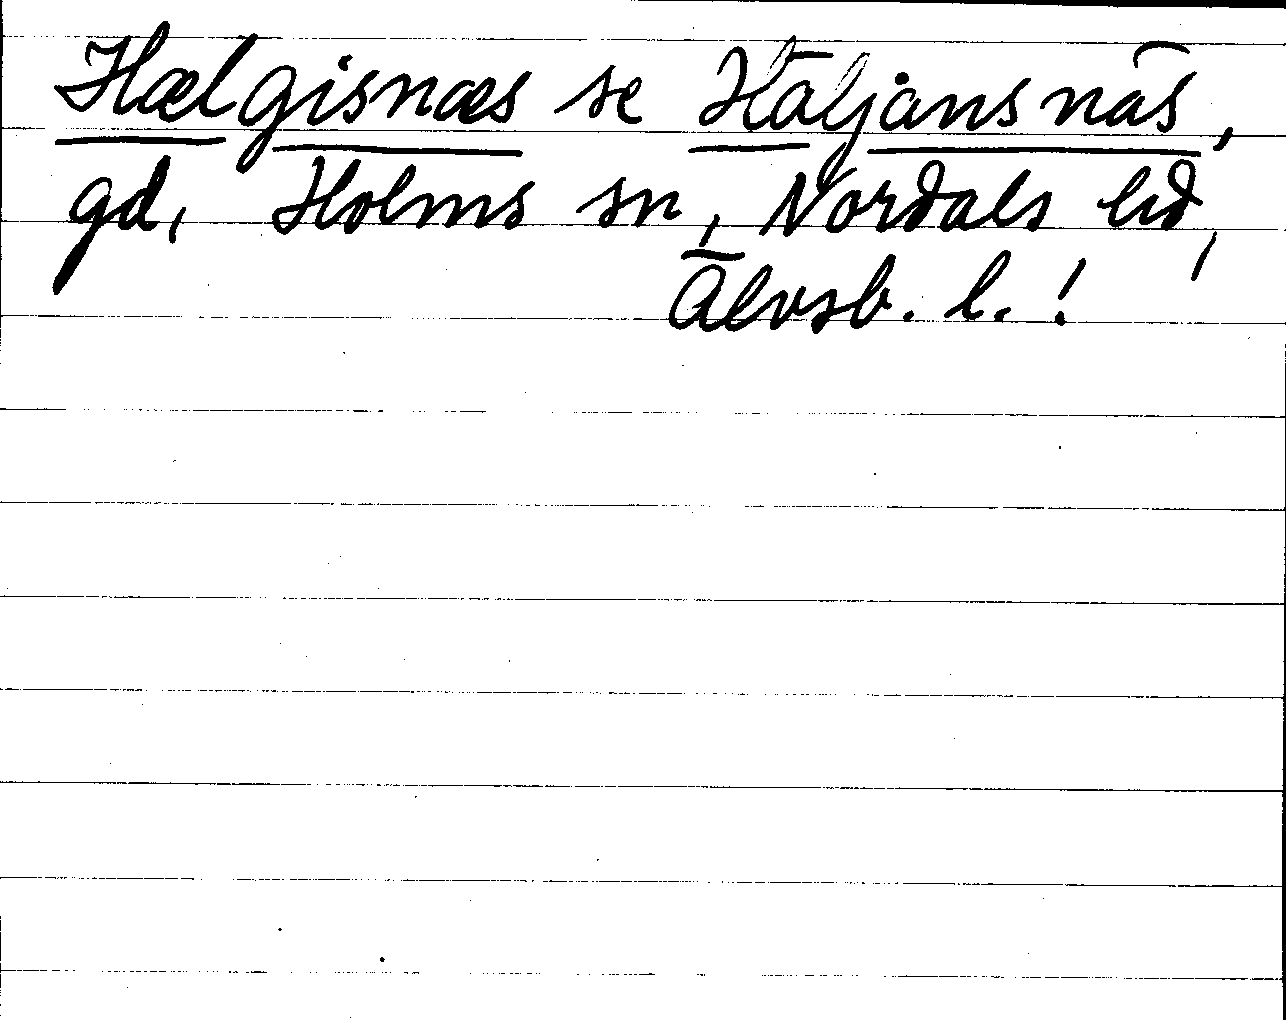 Hælgisnæs se Häljansnäs,
gd, Holms sn, Nordals hd,
Älvsb. l.!